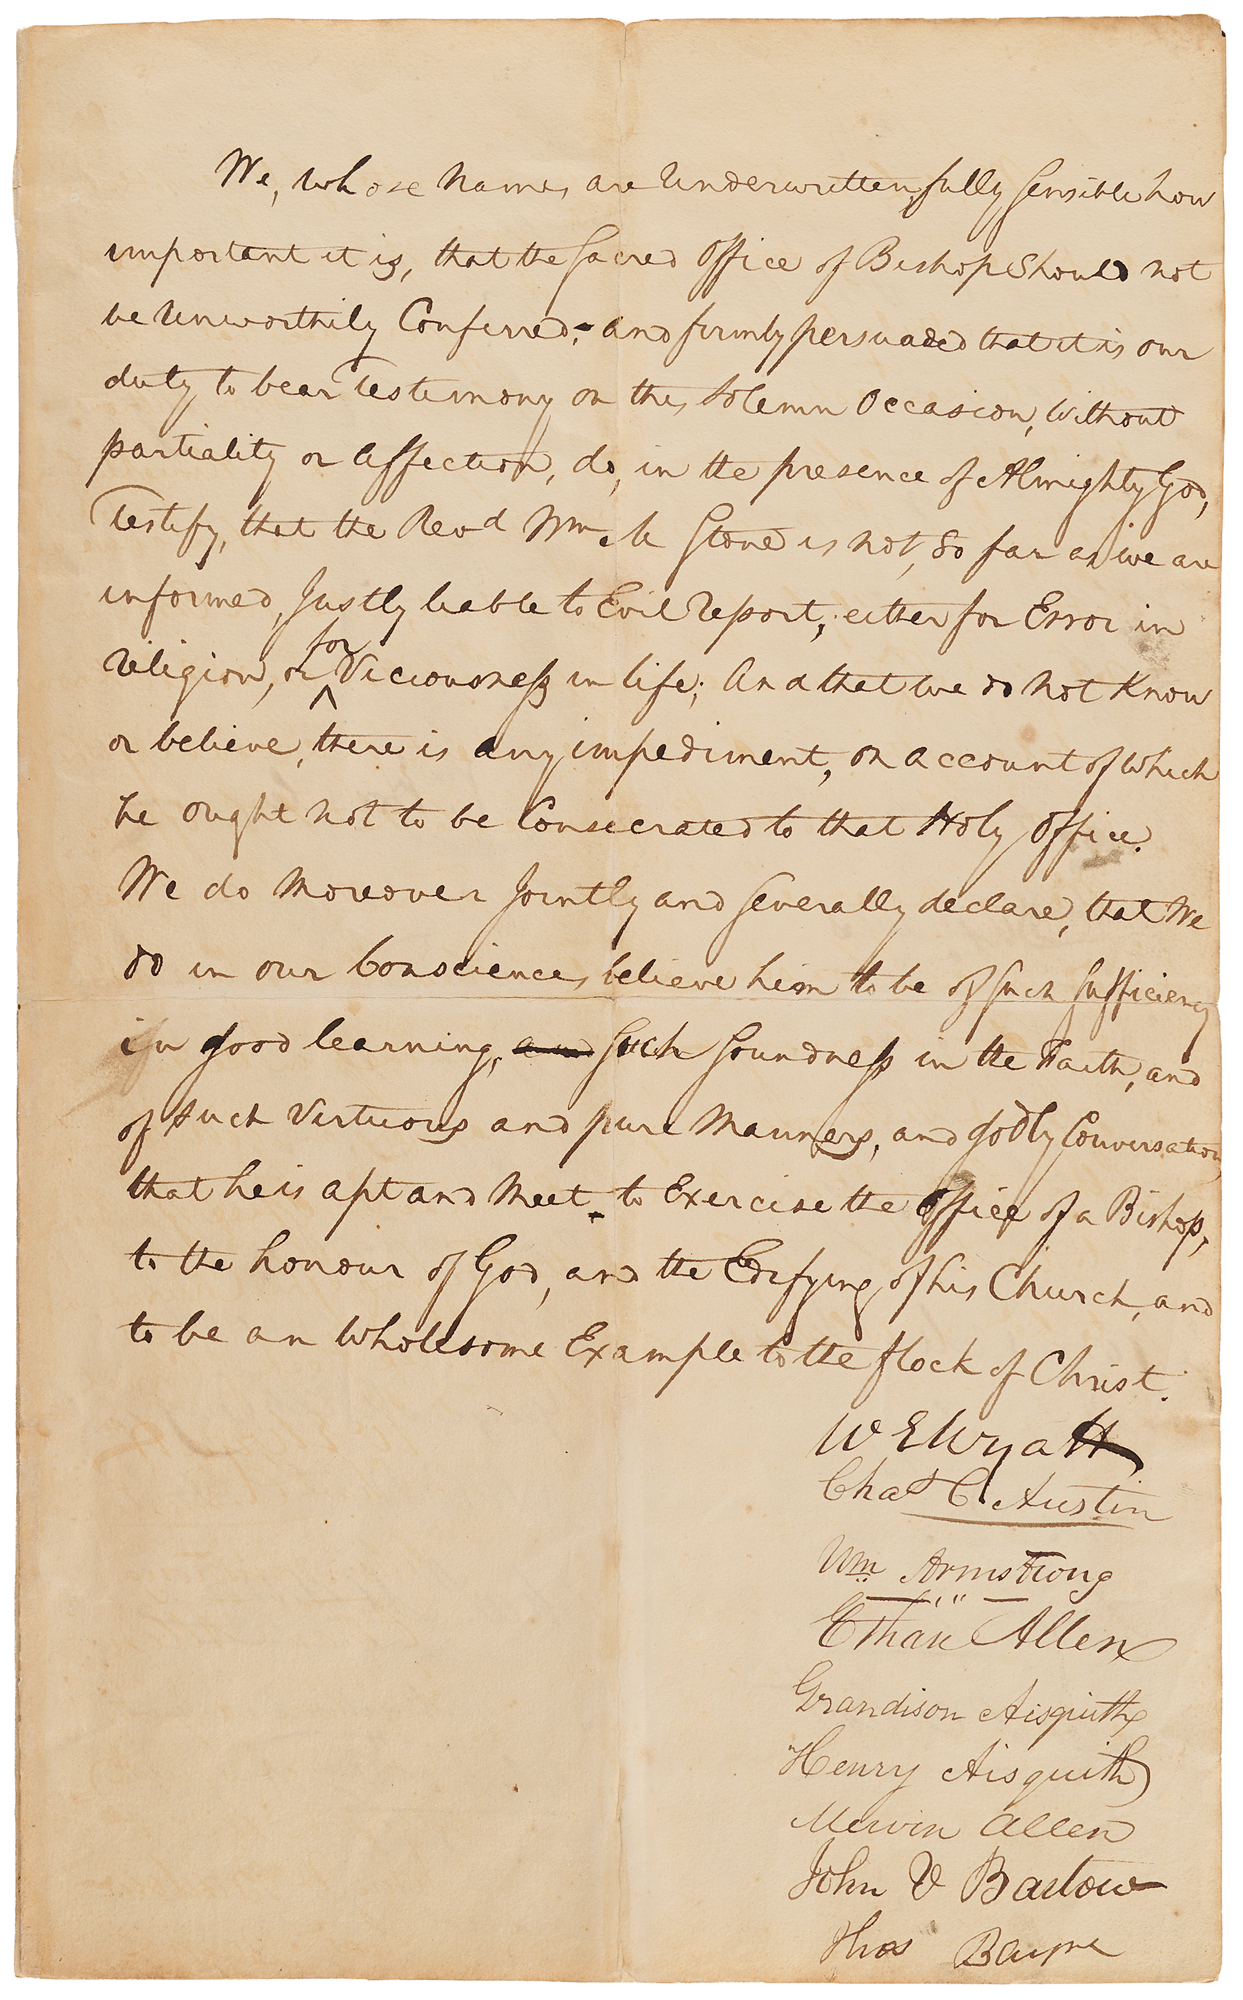 We, whose names are underwritten, fully Sensible how
important it is, that the Sacred Office of Bishop Should not
be unworthily Conferred; and firmly persuaded that it is our
duty to bear Testimony on this Solemn Occasion, without
partiality or affection, do, in the presence of Almighty God,
Testify, that the Revd Wm. M Stone is not, So far as we are
informed, Justly liable to Evil Report, either for Error in
religion, or for Viciousness in life; And that we do not Know
or believe, there is any impediment, on account of which
he ought not to be Consecrated to that Holy Office.
We do Moreover Jointly and Severally declare, that We
do in our Consciences believe him to be of Such Sufficiency
in good learning, and Such Soundness in the Faith, and
of Such Virtuous and pure Manners, and godly Conversation,
that he is apt and Meet to Exercise the Office of a Bishop,
to the honour of God, and the Edifying of his Church, and
to be an Wholesome Example to the flock of Christ.
W E Wyatt
Chas C. Austin
Wm Armstrong
Ethan Allen
Grandison Aisquith
Henry Aisquith
Mervin Allen
John V Bartow
Thos Bayne